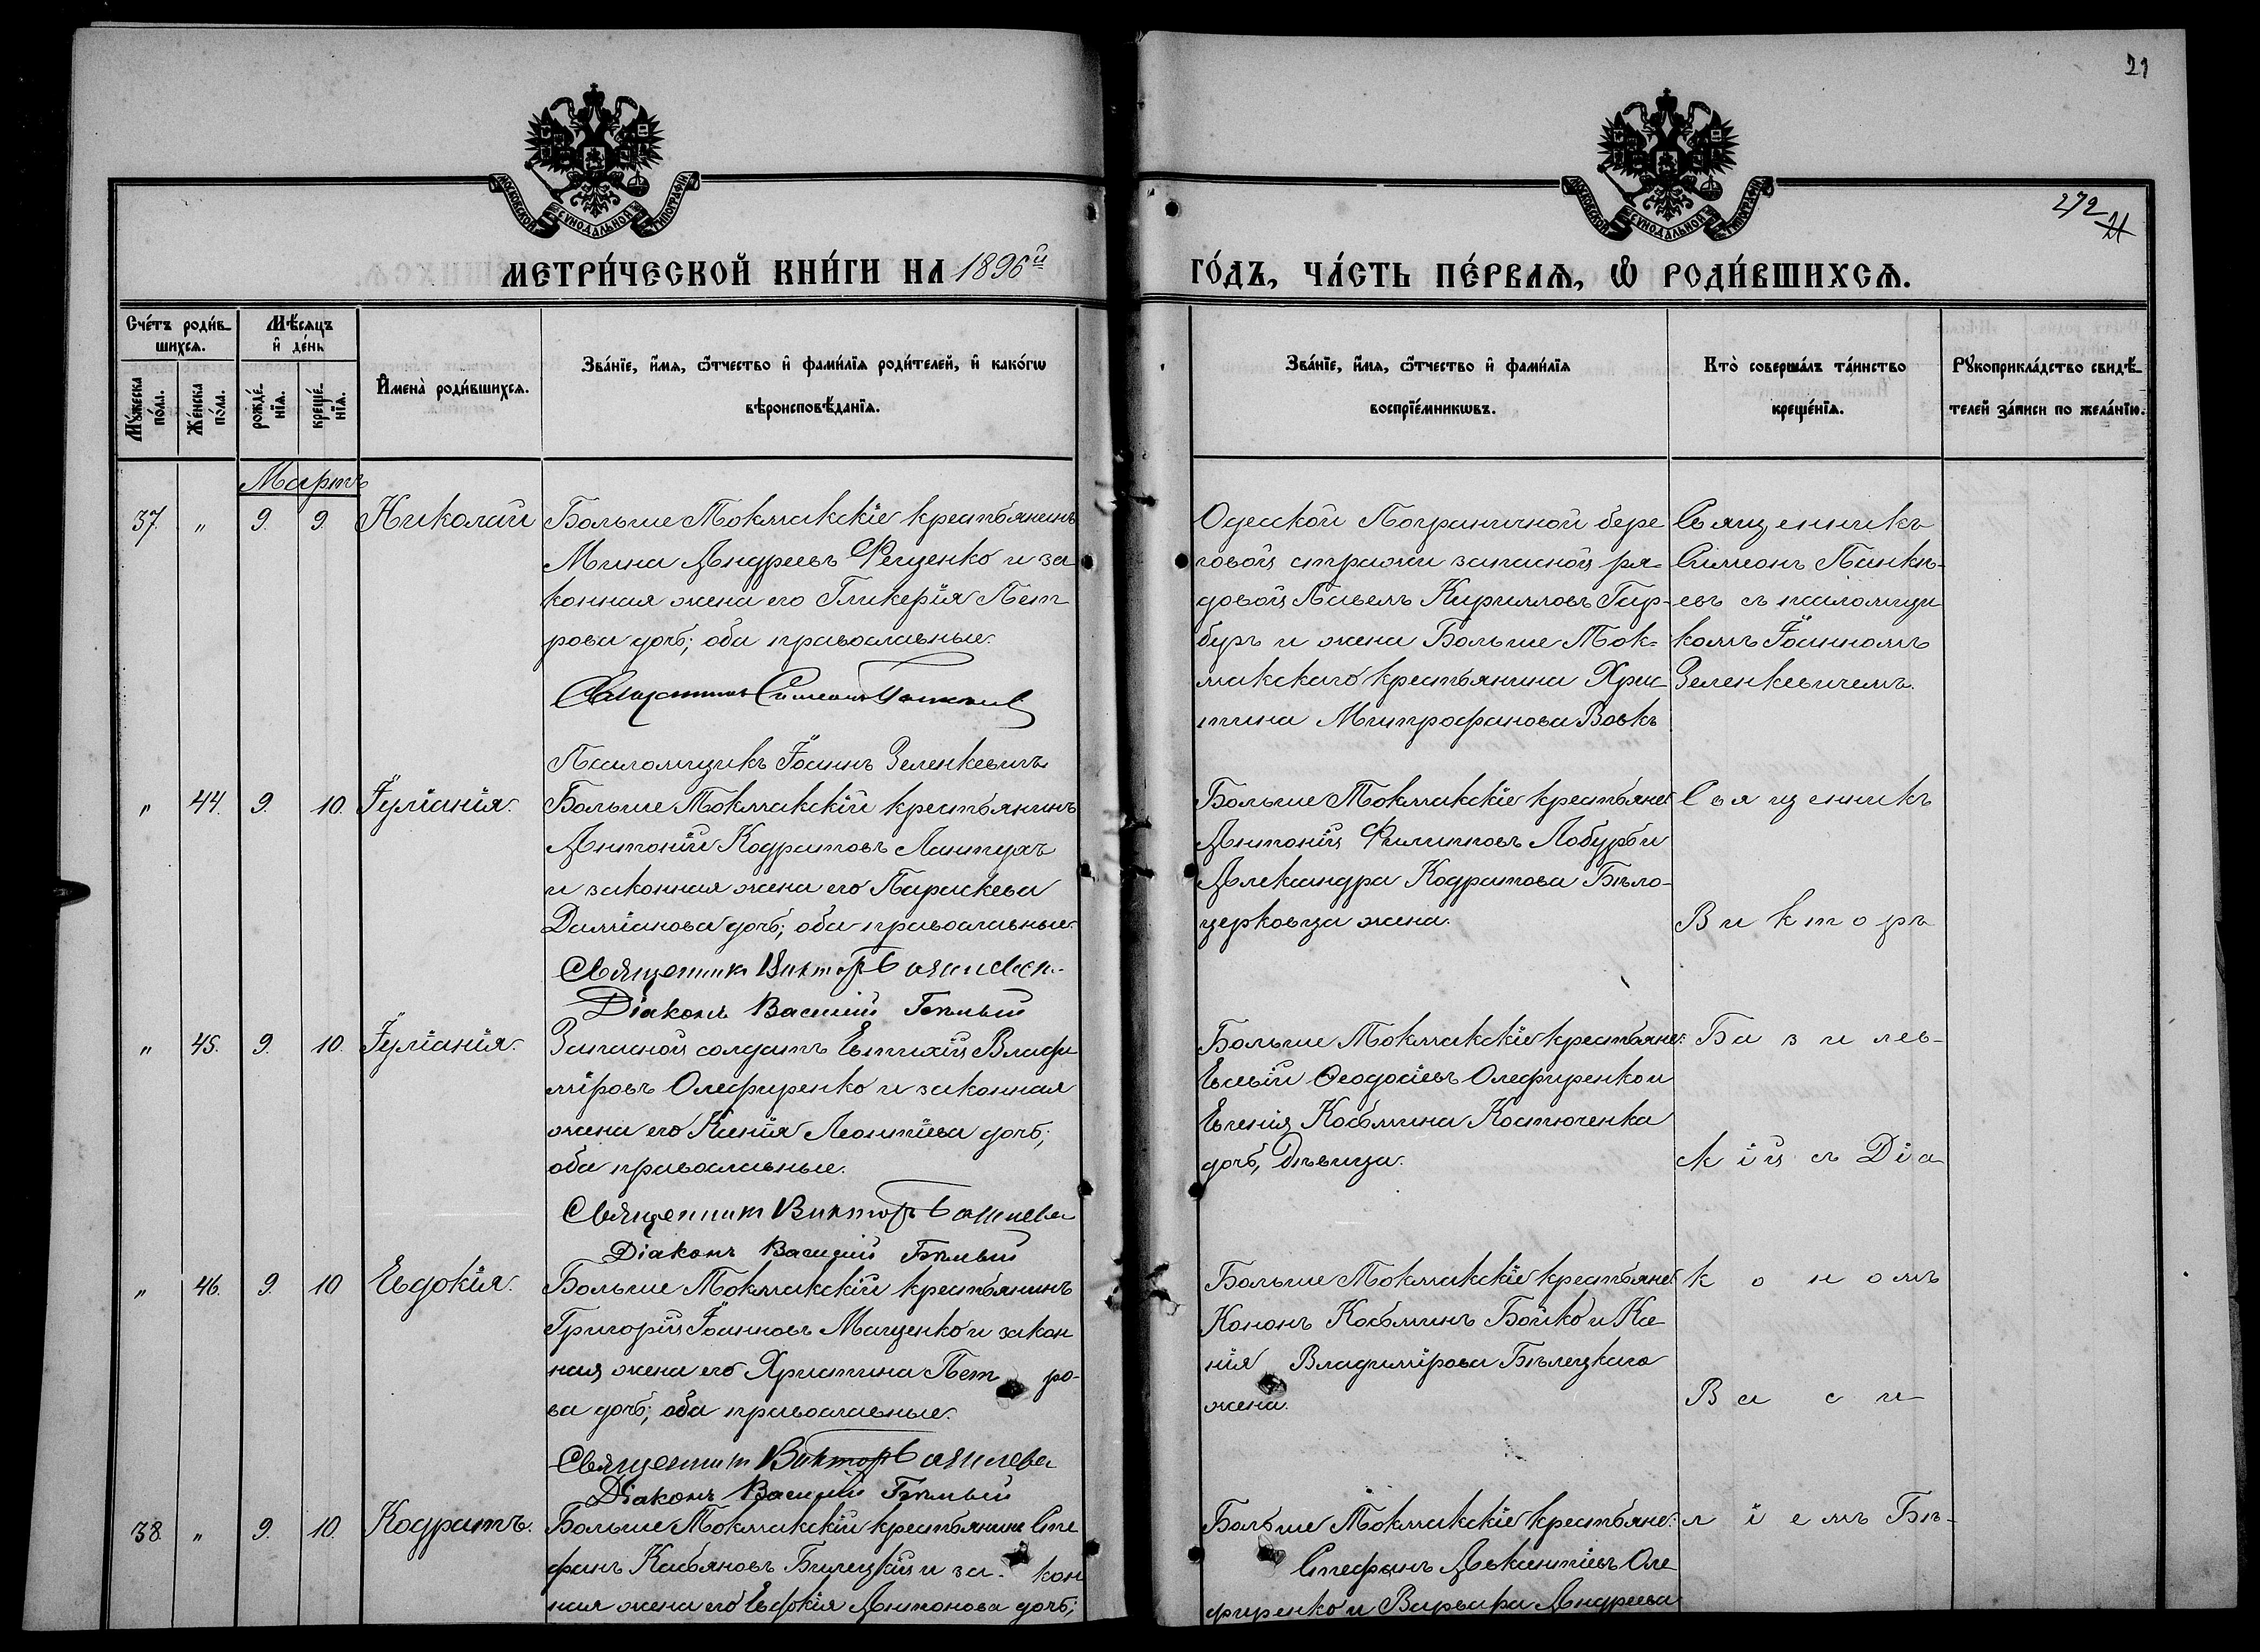 21
272
21
МОСКОВСКОЙ СУНОДАЛЬНОЙ ТИПОГРАФІИ
МОСКОВСКОЙ СУНОДАЛЬНОЙ ТИПОГРАФІИ
МЕТРИ́ЧЕСКОЙ КНИ́ГИ НА 1896й
ГО́ДЪ, ЧА́СТЬ ПЕ́РВАѦ, Ѽ РОДИ́ВШИХСѦ.
Сче́тъ роди́в-
шихсѧ.
Мѣ́сѧцъ
и҆ де́нь
Мꙋ́жеска по́ла.
Же́нска по́ла.
рожде́-нїѧ.
креще́-нїѧ.
И҆мена̀ роди́вшихсѧ.
Зва́нїе, и҆́мѧ, ѻ҆́тчество и҆ фами́лїѧ роди́телей, и҆ како́гѡ
вѣроисповѣ́данїѧ.
Зва́нїе, и҆́мѧ, ѻ҆́тчество и҆ фами́лїѧ
воспрїе́мникѡвъ.
Кто̀ соверша́лъ та́инство
креще́нїѧ.
Рꙋкоприкла́дство свидѣ́-
телей за́писи по жела́нїю.
Мартъ
37. " 9. 9. Николай
Больше Токмакскіе крестьянинъ
Мина Андреевъ Фещенко и за
конная жена его Гликерія Пет
рова дочь; оба православные.
Священникъ Симеонъ Панкѣев
Псаломщикъ Іоаннъ Зеленкевичъ
Одесской Пограничной бере
говой стражи запасной ря-
довой Павелъ Кирилловъ Гар-
буръ и жена Больше Ток-
макскаго крестьянина Хрис
тина Митрофанова Вовкъ
Священникъ
Симеонъ Панкѣ-
евъ съ псаломщи
комъ Іоанномъ
Зеленкевичемъ.
" 44. 9. 10. Іуліанія.
Больше Токмакскій крестьянинъ
Антоній Кодратовъ Лантухъ
и законная жена его Параскева
Даміанова дочь; оба православные.
Священник Виктор Базилевск.
Діаконъ Василій Бѣлый
Больше Токмакскіе крестьяне
Антоній Филипповъ Лобурь и
Александра Кодратова Бѣло-
церковца жена.
Священникъ
Викторъ
" 45. 9. 10. Іуліанія.
Запасной солдатъ Евтихій Влади
міровъ Олефиренко и законная
жена его Ксенія Леонтіева дочь;
оба православные.
Священник Виктор Базилевс
Діаконъ Василій Бѣлый
Больше Токмакскіе крестьяне:
Евсевій Ѳеодосіевъ Олефиренко и
Евгенія Косьмина Костюченка
дочь, дѣвица.
Базилев-
скій съ Діа
" 46. 9. 10 Евдокія.
Больше Токмакскій крестьянинъ
Григорій Іоанновъ Мащенко и закон
ная жена его Христина Пет ро-
ва дочь; оба православные.
Священник Виктор Базилевс
Діаконъ Василій Бѣлый
Больше Токмакскіе крестьяне
Кононъ Косьминъ Бойко и Ксе
нія Владимірова Бѣлецкаго
жена.
кономъ
Васи
38. " 9. 10. Кодратъ.
Больше Токмакскій крестьянинъ Сте
фанъ Касьяновъ Билецкій и за- кон
ная жена его Евдокія Антонова дочь;
Больше Токмакскіе крестьяне:
Стефанъ Авксентіевъ Оле
фиренко и Варвара Андреева
ліемъ Бѣ-